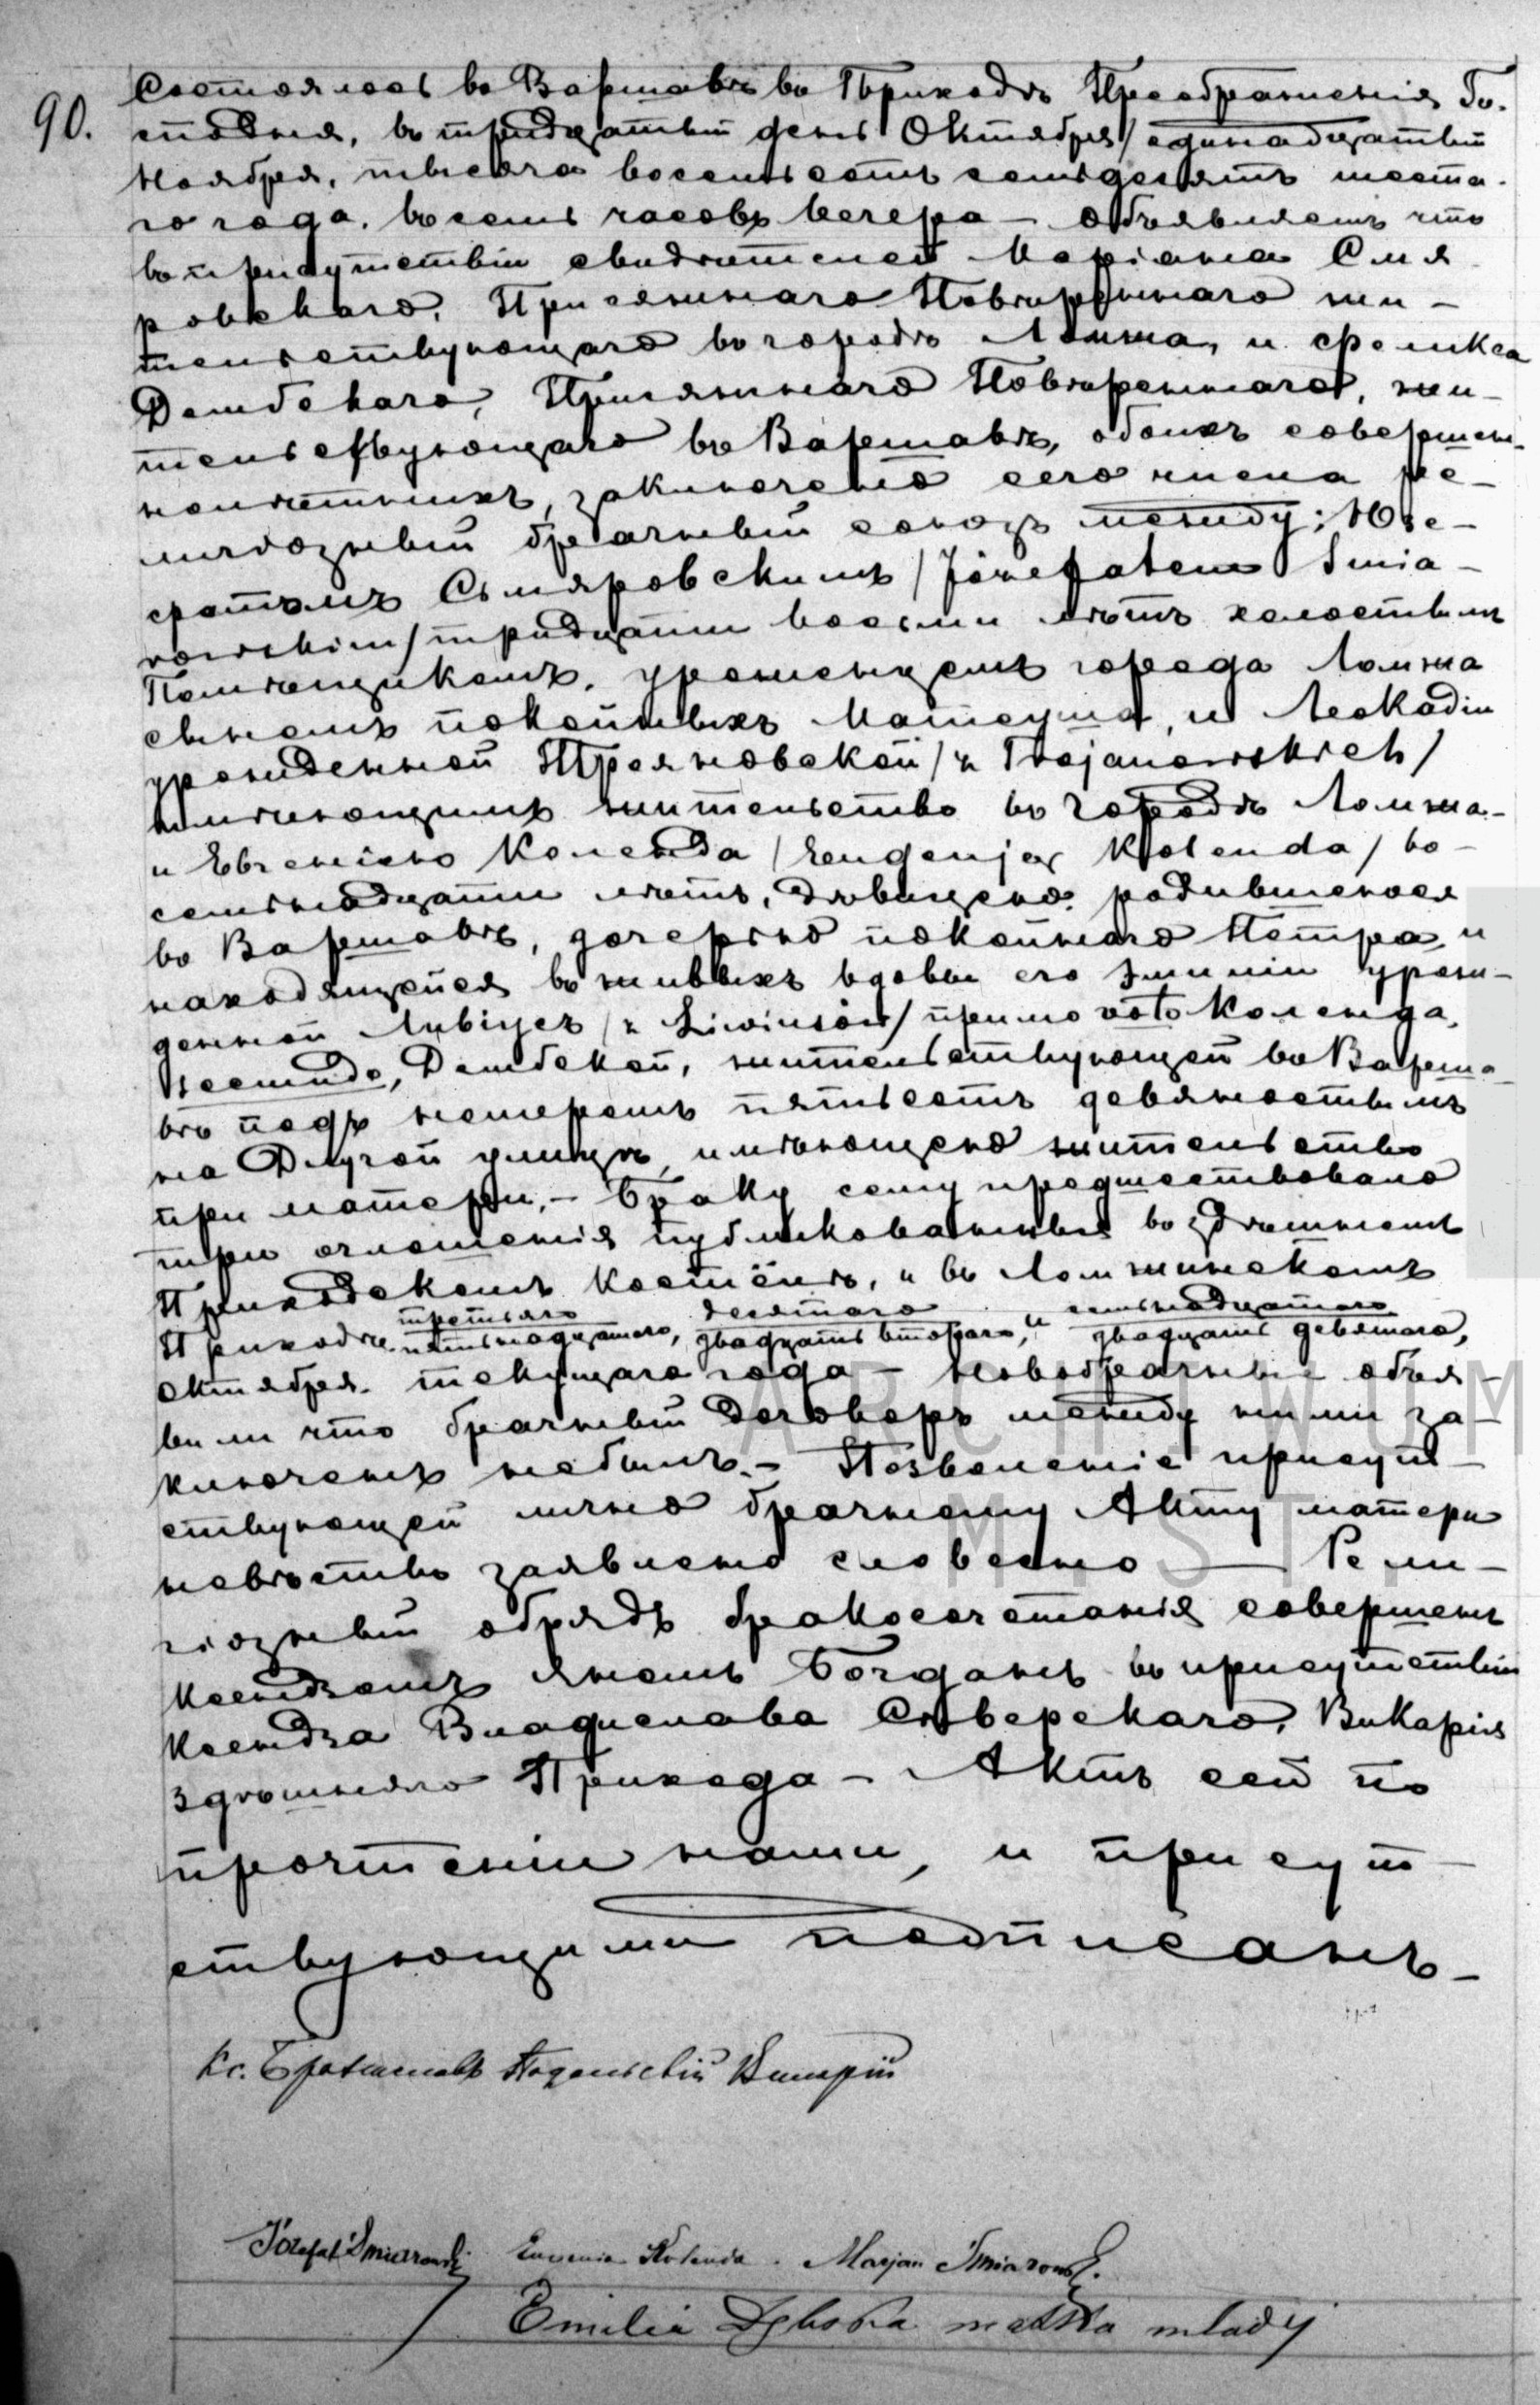 90.
Состоялось въ Варшавѣ въ Приходѣ Преображенія Го-
сподня, въ тридцатый день Октября / единадцатый
Ноября, тысяча восемьсотъ семьдесятъ шеста-
го года, въ семь часовъ вечера – объявляемъ что
въ присутствіи свидѣтелей Маріана Смя
ровскаго, Присяжнаго Повѣреннаго жи-
тельствующаго въ городѣ Ломжа, и Феликса
Дембскаго, Присяжнаго Повѣреннаго, жи-
тельствующаго въ Варшавѣ, обоихъ совершен-
нолѣтнихъ, заключенъ сего числа ре-
лигіозный брачный союзъ между: Юзе-
фатомъ Смяровскимъ / Józefatem Śmia-
rowskim / тридцати восьми лѣтъ холостымъ
Помѣщикомъ, уроженцемъ города Ломжа
сыномъ покойныхъ Матеуша, и Леокадіи
урожденной Трояновской / z Trojanowskich /
имѣющимъ жительство въ городѣ Ломжа-
и Евгенію Коленда / Eugenją Kolenda / во-
семьнадцати лѣтъ, дѣвицею, родившеюся
въ Варшавѣ, дочерью покойнаго Петра, и
находящейся въ живыхъ вдовы его Эмиліи урож-
денной Ливіусъ / z Liwiusów / примо voto Коленда,
секундо, Дембской, жительствующей въ Варша-
вѣ подъ номеромъ пятьсотъ девяностымъ
на Длугой улицѣ, имѣющею жительство
при матери. – Браку сему предшествовало
три оглашенія публикованныя въ здѣшнемъ
Приходскомъ Костёлѣ, и въ Ломжинскомъ
третьяго десятаго и семьнадцатаго
Приходѣ пятьнадцатаго, двадцать втораго, и двадцать девятаго,
Октября текущаго года – Новобрачные объя-
вили что брачный договоръ между ними за-
ключенъ небылъ. – Позволеніе присут-
ствующей лично брачному Акту матери
невѣсты заявлено словесно — Рели-
гіозный обрядъ бракосочетанія совершенъ
Ксендзомъ Яномъ Богданъ въ присутствіи
Ксендза Владислава Сѣверскаго, Викарія
здѣшняго Прихода – Актъ сей по
прочтеніи нами, и присут-
ствующими подписанъ –
Кс. Викарій
Józefat Śmiarowski Eugenia Kolenda. Marjan Śmiarowski.
Emilia Dębska matka młody